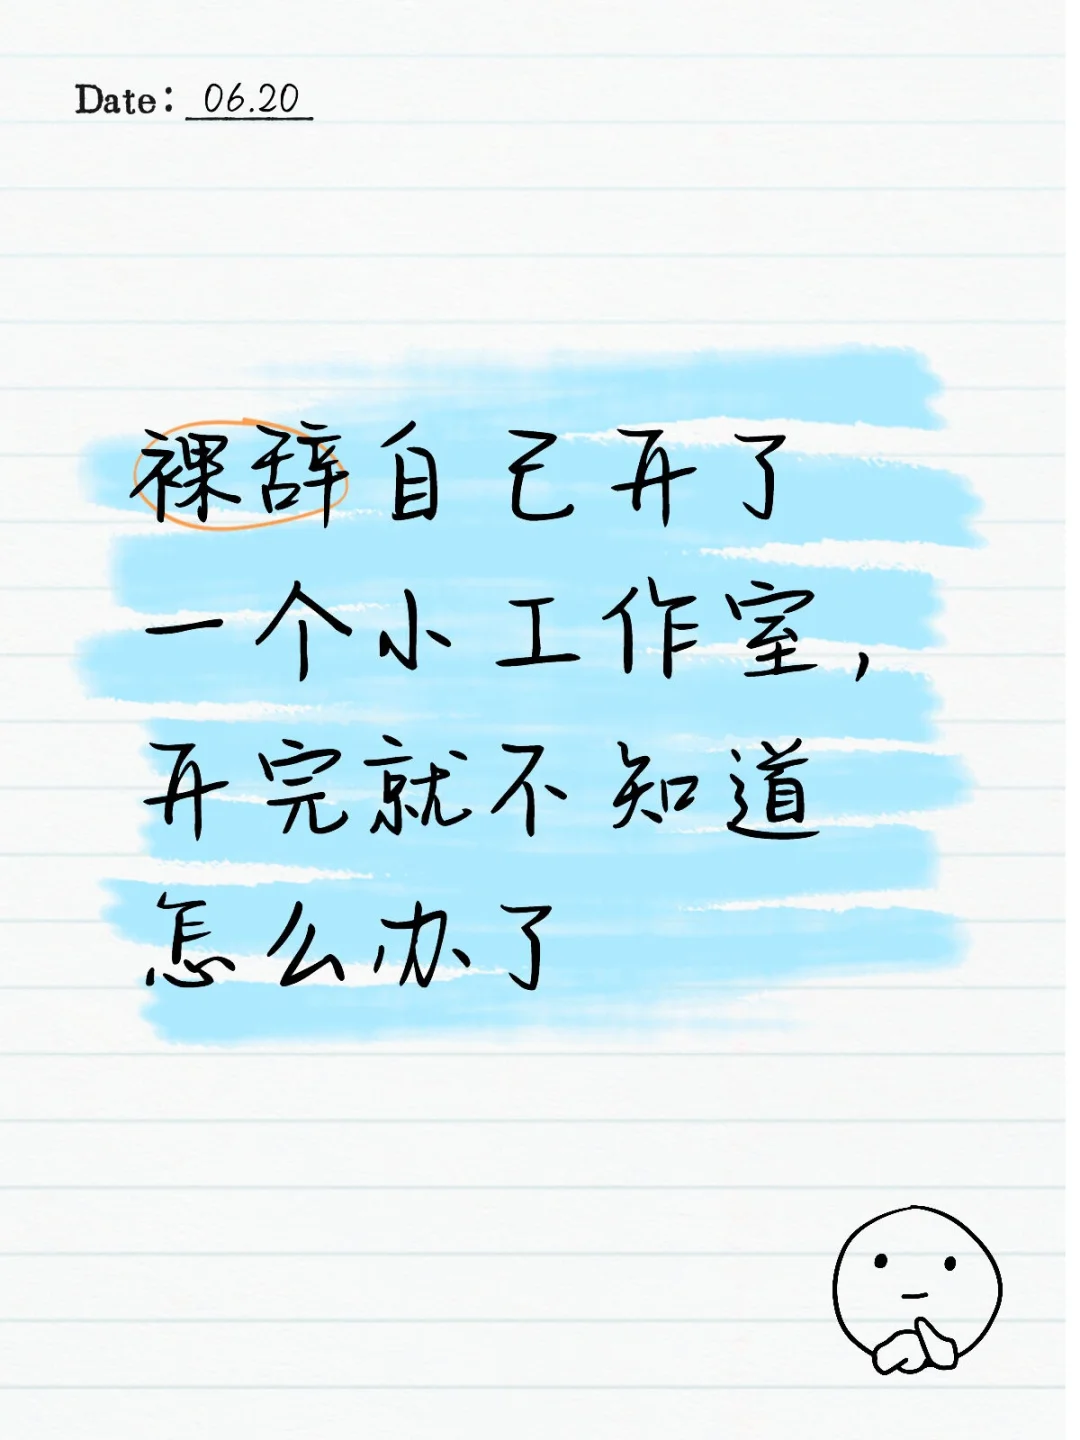 Date: 06.20
裸辞自己开了
一个小工作室，
开完就不知道
怎么办了